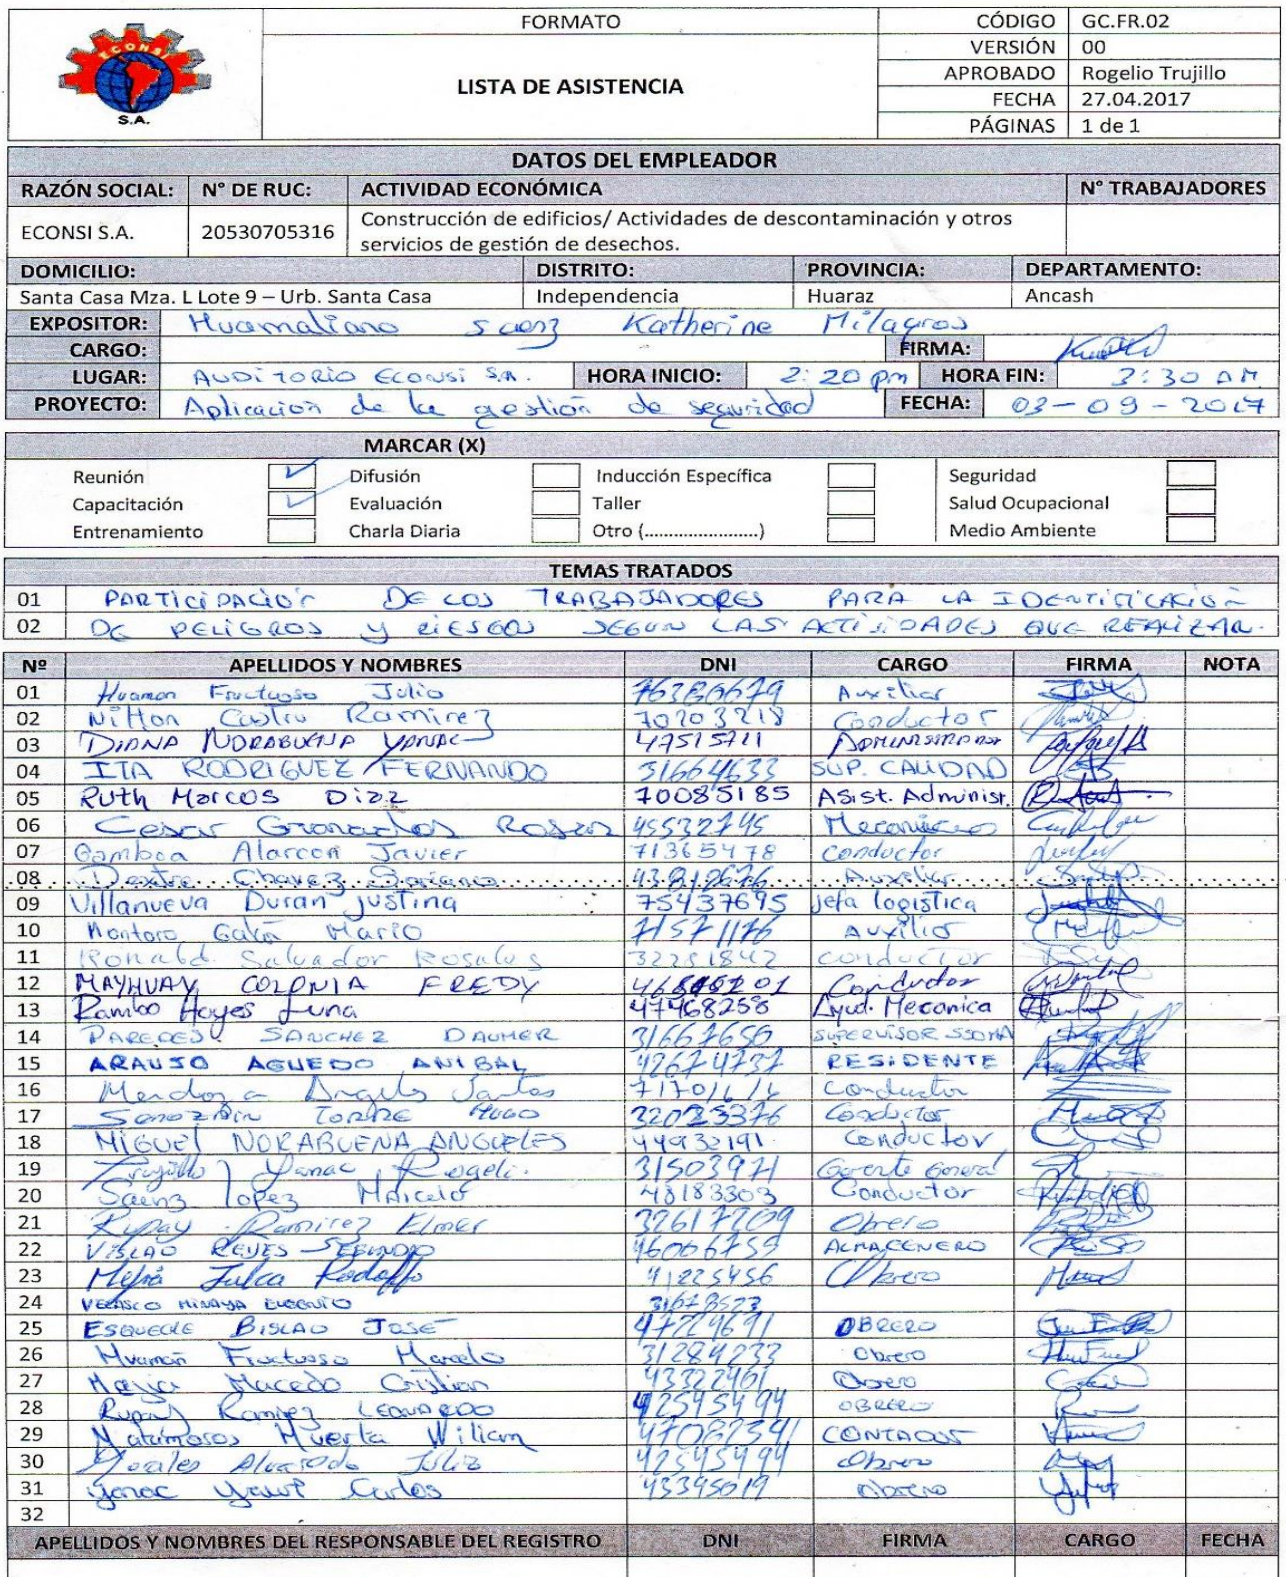 ECONSI
S.A.
FORMATO
LISTA DE ASISTENCIA
CÓDIGO GC.FR.02
VERSIÓN 00
APROBADO Rogelio Trujillo
FECHA 27.04.2017
PÁGINAS 1 de 1
DATOS DEL EMPLEADOR
RAZÓN SOCIAL: N° DE RUC: ACTIVIDAD ECONÓMICA N° TRABAJADORES
ECONSI S.A. 20530705316 Construcción de edificios/ Actividades de descontaminación y otros
servicios de gestión de desechos.
DOMICILIO: DISTRITO: PROVINCIA: DEPARTAMENTO:
Santa Casa Mza. L Lote 9 – Urb. Santa Casa Independencia Huaraz Ancash
EXPOSITOR: Huamaliano Saenz Katherine Milagros
CARGO: FIRMA:
LUGAR: AUDITORIO ECONSI S.A. HORA INICIO: 2:20 pm HORA FIN: 3:30
PROYECTO: Aplicación de la gestión de seguridad FECHA: 03-09-2017
MARCAR (X)
Reunión Difusión Inducción Específica Seguridad
Capacitación Evaluación Taller Salud Ocupacional
Entrenamiento Charla Diaria Otro (.......................) Medio Ambiente
TEMAS TRATADOS
01 PARTICIPACIÓN DE LOS TRABAJADORES PARA LA IDENTIFICACIÓN
02 DE PELIGROS Y RIESGOS SEGUN LAS ACTIVIDADES QUE REALIZAN.
Nº APELLIDOS Y NOMBRES DNI CARGO FIRMA NOTA
01 Huaman Fructuoso Julio 76386679 Auxiliar
02 Nilton Castro Ramirez 70203218 Conductor
03 DIANA NORABUENA YANAC 47515711 ADMINISTRADOR
04 ITA RODRIGUEZ FERNANDO 31664633 SUP. CALIDAD
05 Ruth Marcos Diaz 70085185 Asist. Administ.
06 Cesar Granados Rosas 45532745 Mecanico
07 Gamboa Alarcon Javier 71365478 conductor
08 Dextre Chavez 43812676 Auxiliar
09 Villanueva Duran justina 75437695 jefa logistica
10 Montoro Mario 71571176 Auxiliar
11 Ronald Salvador Rosales 32281842 conductor
12 MAYHUAY COLONIA FREDY Conductor
13 Rambo Hayes Luna 47468258 Ayud. Mecanica
14 PAREDES SANCHEZ DAUMER 31667650 SUPERVISOR SSOMA
15 ARAUSO AGUEDO ANIBAL 42674737 RESIDENTE
16 Mendoza Angeles Santos Conductor
17 TORRE HUGO Conductor
18 MIGUEL NORABUENA ANGELES 44932191 CONDUCTOR
19 Trujillo Yanac Rogeli. 31503971 Gerente General
20 Saenz lopez Marcelo 40183303 Conductor
21 Rupay Ramirez Elmer 32617209 Obrero
22 VISLAO REYES SEGUNDO 46066755 ALMACENERO
23 Mejia Julca Rodolfo 41225456 Obrero
24 VELASCO MINAYA EUGENIO 31678523
25 ESQUECHE BISLAO JOSE 47229691 OBRERO
26 Huaman Fructuoso Marcelo 31284233 Obrero
27 Mejia Macedo Cristian 43322461 Obrero
28 Rupay Ramirez LEONARDO 42545494 OBRERO
29 Matamoros Huerta Wiliam 47082341 CONTADOR
30 Morales Alvarado Julio 42545494 Obrero
31 Yanac Carlos 43395019 Obrero
32
APELLIDOS Y NOMBRES DEL RESPONSABLE DEL REGISTRO DNI FIRMA CARGO FECHA